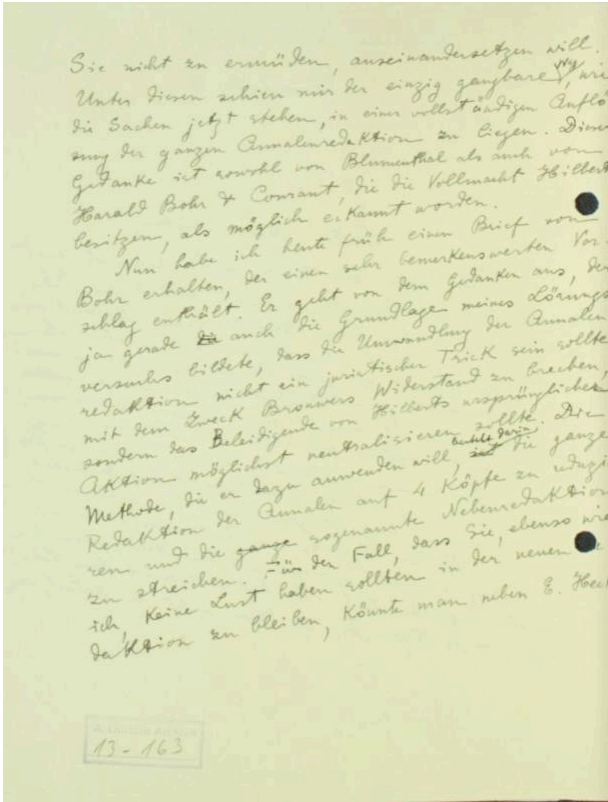 Sie nicht zu ermüden, auseinandersetzen will.
Unter diesen schien mir der einzig gangbare Weg, wie
die Sachen jetzt stehen, in einer vollständigen Auflö-
sung der ganzen Annalenredaktion zu liegen. Dieser
Gedanke ist sowohl von Blumenthal als auch von
Harald Bohr & Courant, die die Vollmacht Hilberts
besitzen, als möglich erkannt worden.
Nun habe ich heute früh einen Brief von
Bohr erhalten, der einen sehr bemerkenswerten Vor-
schlag enthält. Er geht von dem Gedanken aus, der
ja gerade auch die Grundlage meines Lösungs
versuches bildete, dass die Umwandlung der Annalen
redaktion nicht ein juristischer Trick sein sollte
mit dem Zweck Brouwers Widerstand zu brechen,
sondern das Beleidigende von Hilberts ursprünglicher
Aktion möglichst neutralisieren sollte. Die
Methode, die er dazu anwenden will, besteht darin die ganze
Redaktion der Annalen auf 4 Köpfe zu reduzie
ren und die ganze sogenannte Nebenredaktion
zu streichen. Für den Fall, dass Sie, ebenso wie
ich, keine Lust haben sollten in der neuen Re
daktion zu bleiben, könnte man neben E. Heck
13-163